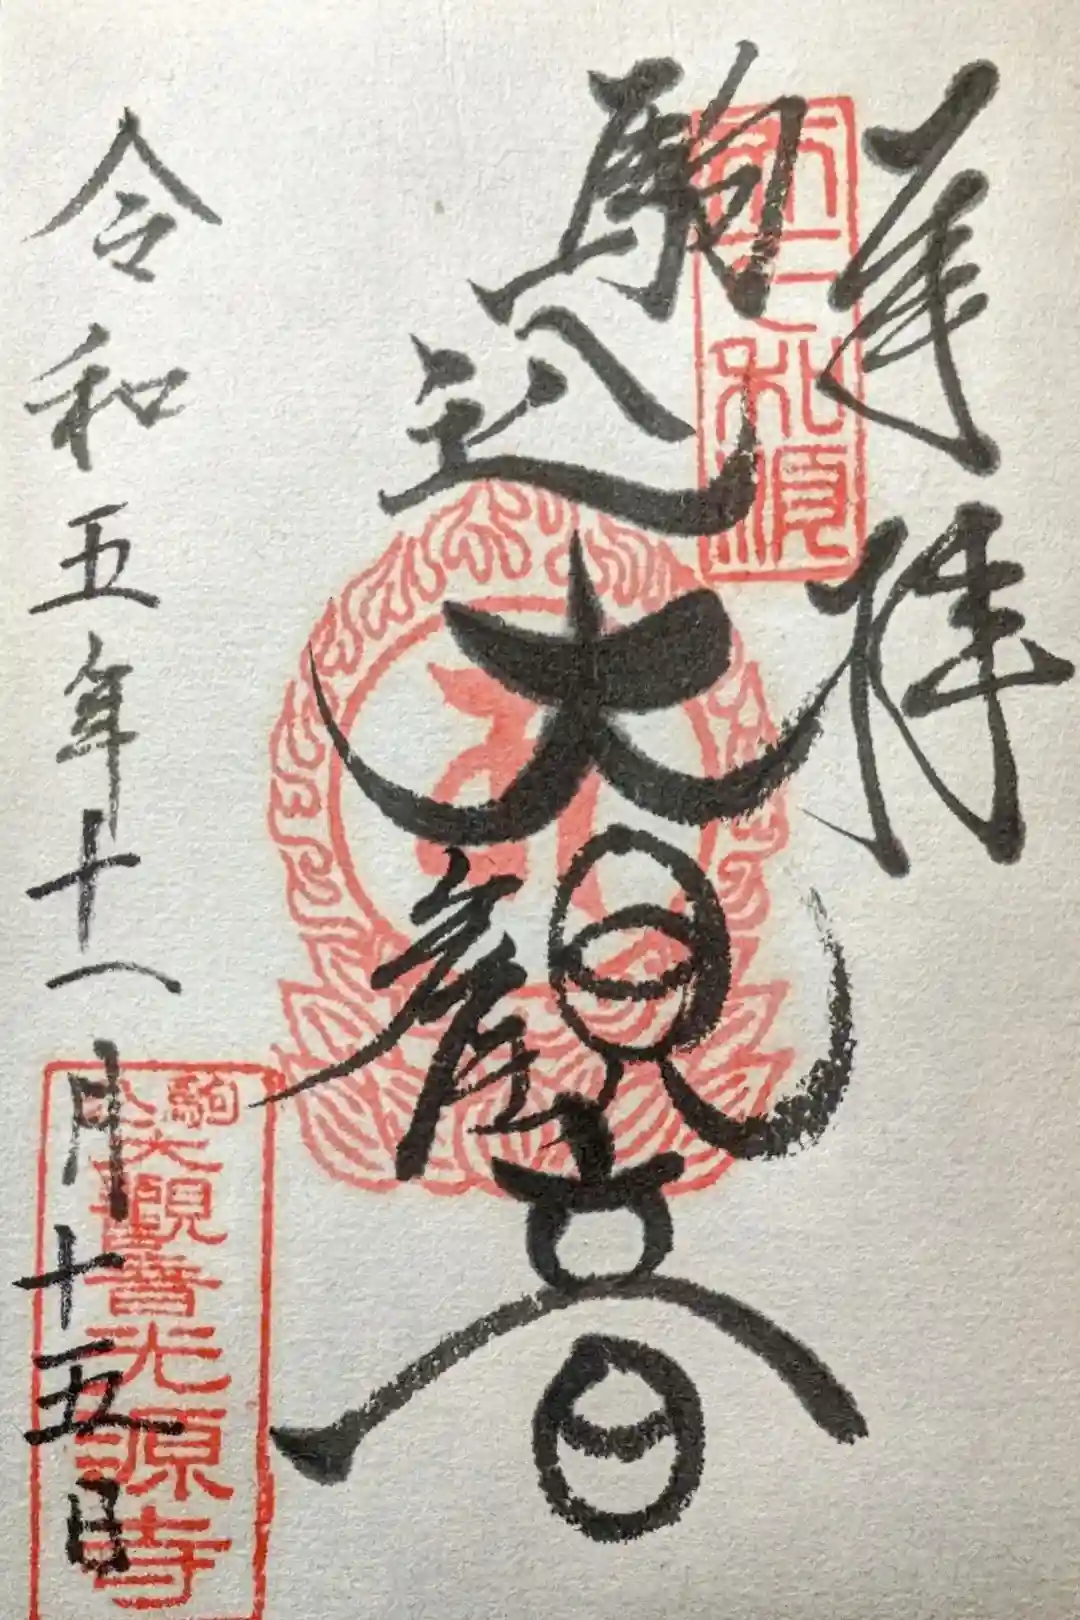 奉拝
駒込大観音
令和五年十一月十五日
駒込大観音光源寺